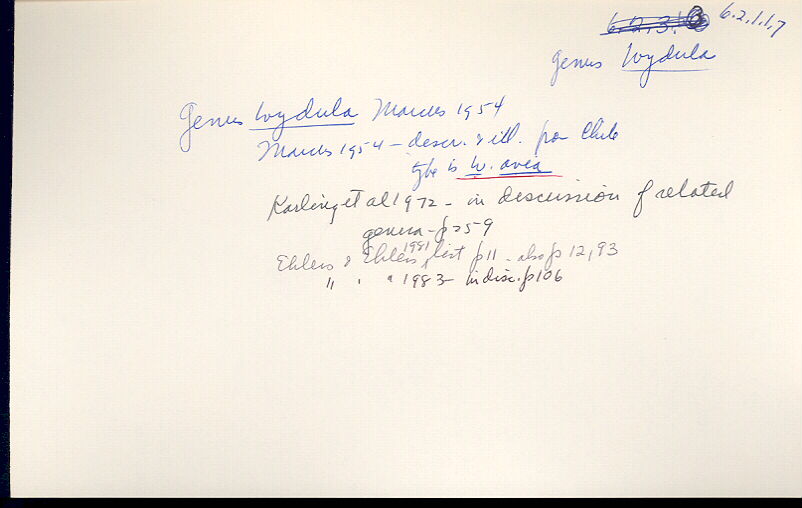 6.2.1.1.7
Genus Wydula
Genus Wydula Marcus 1954
Marcus 1954 - descr. & ill. from Chile
type is W. avea
Karling et al 1972 - in discussion of related
genera - p 259
Ehlers & Ehlers 1981, list p 11 - also p 12, 93
" " " 1983 - in disc. p 106